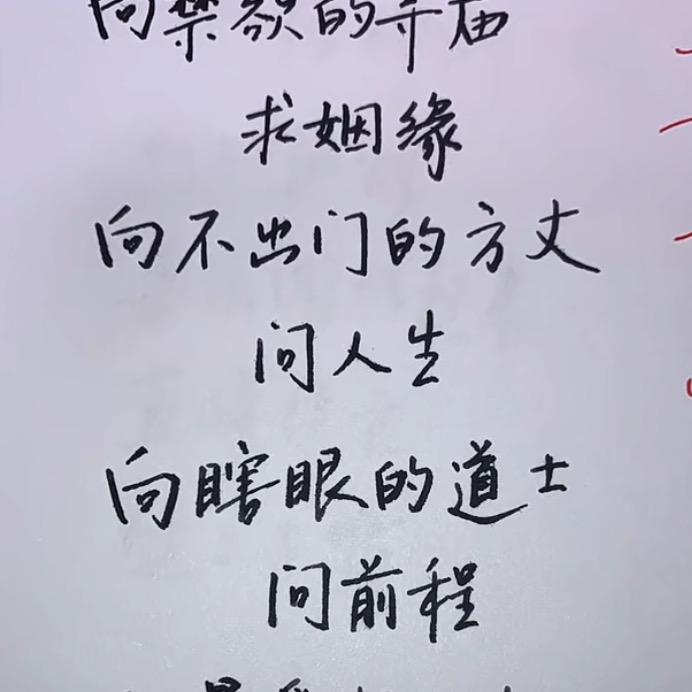 向禁欲的寺庙
求姻缘
向不出门的方丈
问人生
向瞎眼的道士
问前程